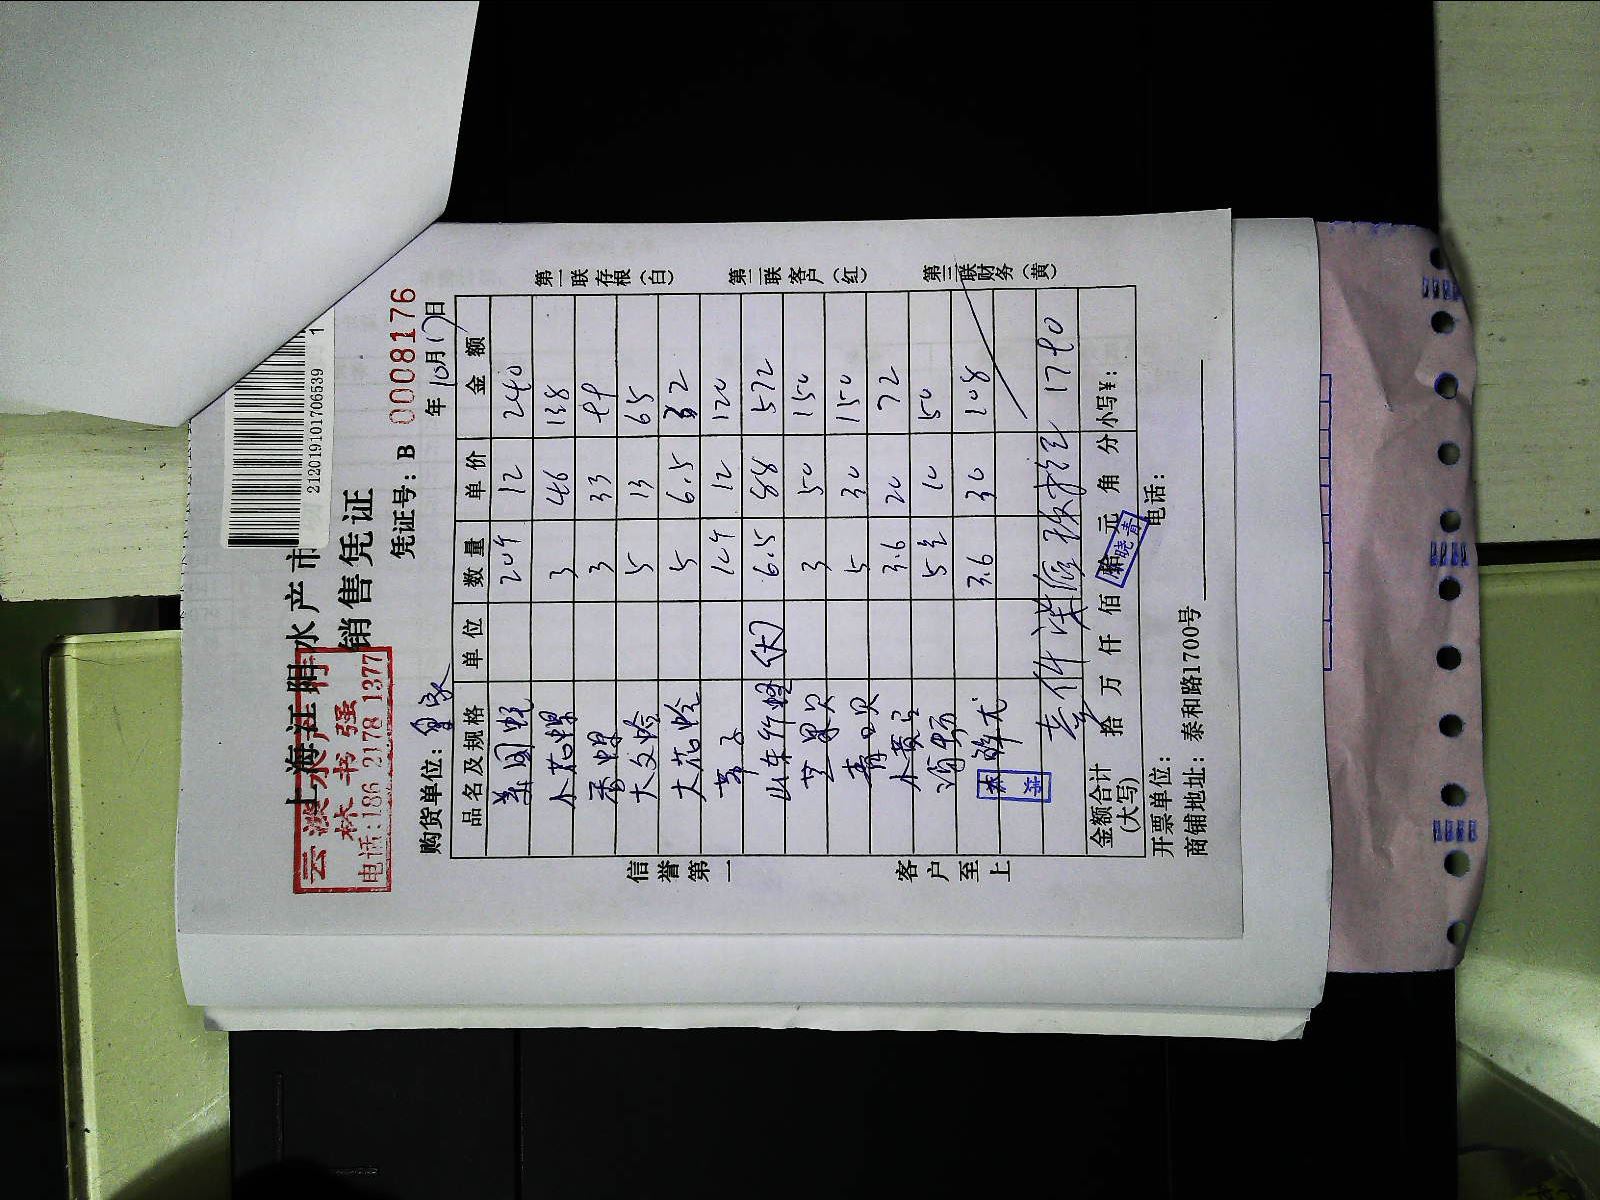 2120191017065391
上海江阳水产市
云 澂水产行
林书强
电话:186 2178 1377
销售凭证
凭证号: B 0008176
购货单位: 年 10月17日
品名及规格 单位 数量 单价 金额
20个 12 240
小花螺 3 46 138
香螺 3 33 99
大文蛤 5 13 65
大花蛤 5 6.5 32
12个 12 120
山东竹蛏 (大) 6.5 88 572
芒果贝 3 50 150
青口贝 5 30 150
小黄 3.6 20 72
5 10 50
3.6 30 108
1790
金额合计(大写) 拾 万 仟 佰 元 角 分 小写¥:
晓青
开票单位: 电话:
商铺地址: 泰和路1700号
信誉第一 客户至上
第一联存根(白) 第二联客户(红) 第三联财务(黄)